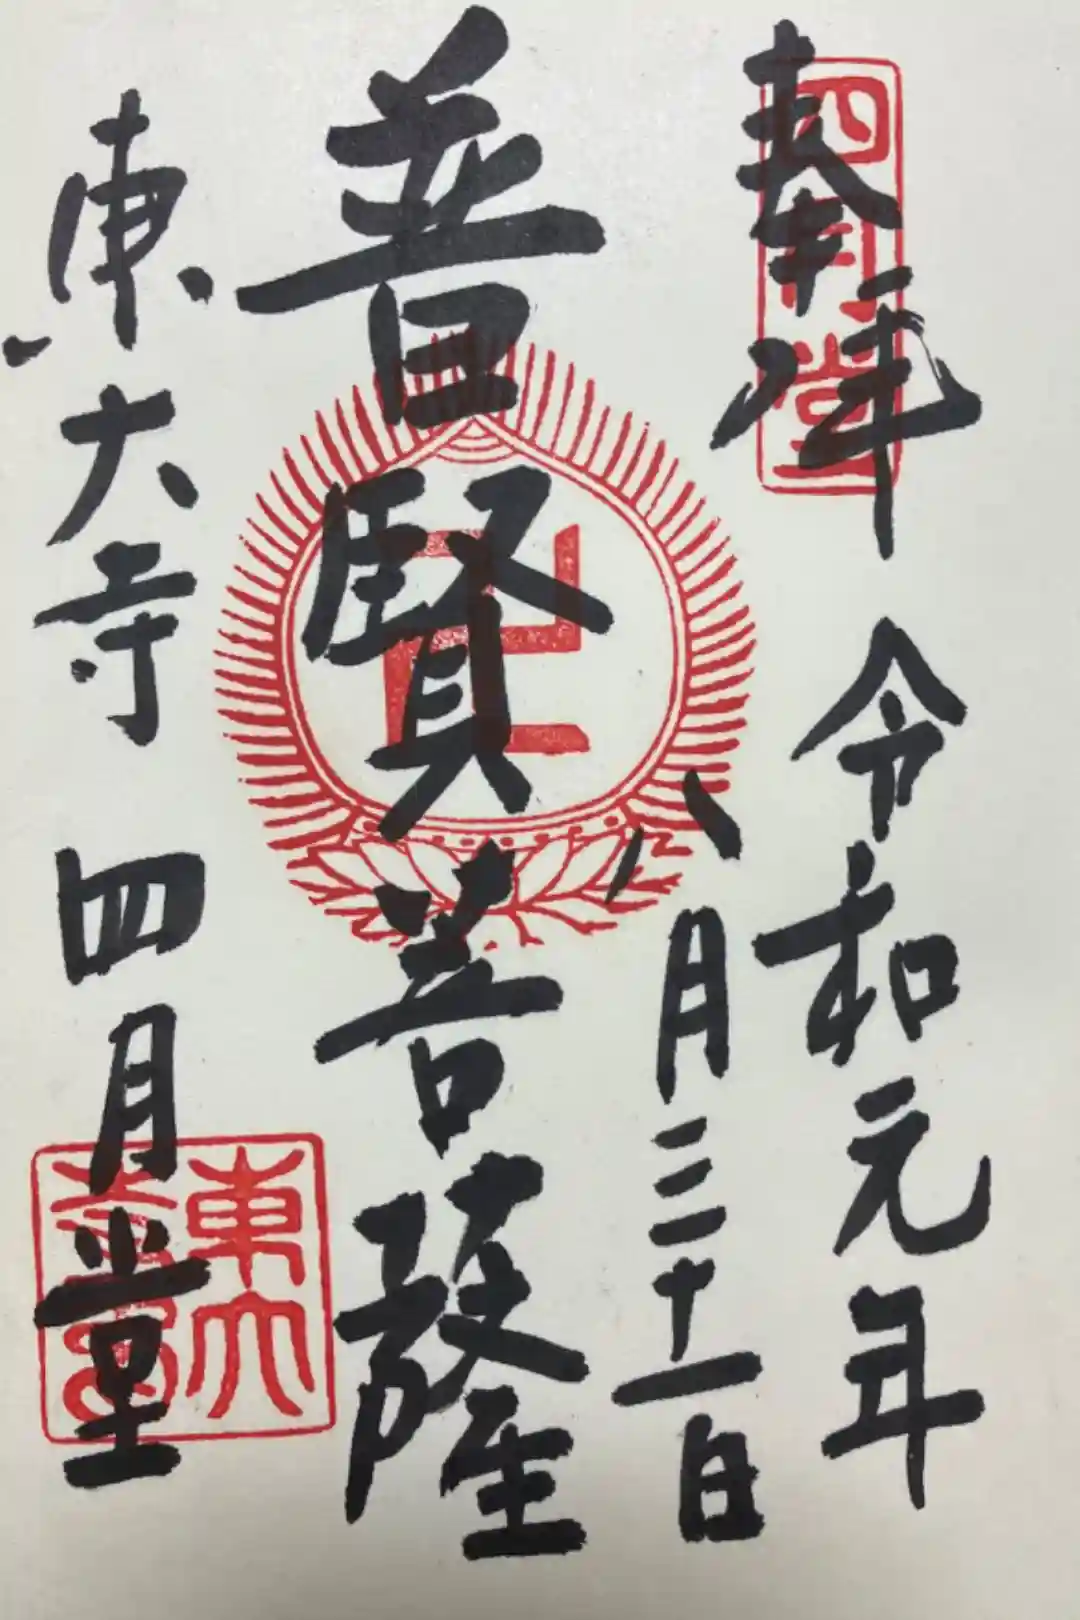 四月堂
奉拝
令和元年
八月三十一日
普賢菩薩
卍
東大寺
四月堂
東大
寺印